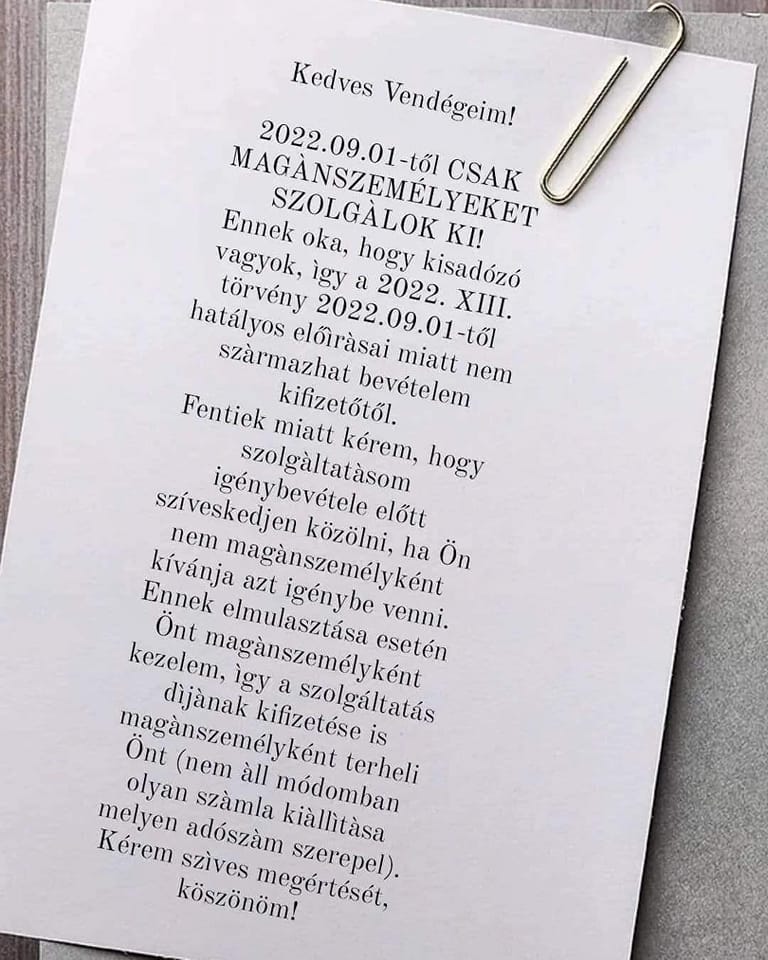 Kedves Vendégeim!
2022.09.01-től CSAK
MAGÀNSZEMÉLYEKET
SZOLGÀLOK KI!
Ennek oka, hogy kisadózó
vagyok, ìgy a 2022. XIII.
törvény 2022.09.01-től
hatályos előìràsai miatt nem
szàrmazhat bevételem
kifizetőtől.
Fentiek miatt kérem, hogy
szolgàltatàsom
igénybevétele előtt
szíveskedjen közölni, ha Ön
nem magànszemélyként
kívánja azt igénybe venni.
Ennek elmulasztása esetén
Önt magànszemélyként
kezelem, ìgy a szolgáltatás
dìjànak kifizetése is
magànszemélyként terheli
Önt (nem àll módomban
olyan szàmla kiàllìtàsa
melyen adószàm szerepel).
Kérem szìves megértését,
köszönöm!